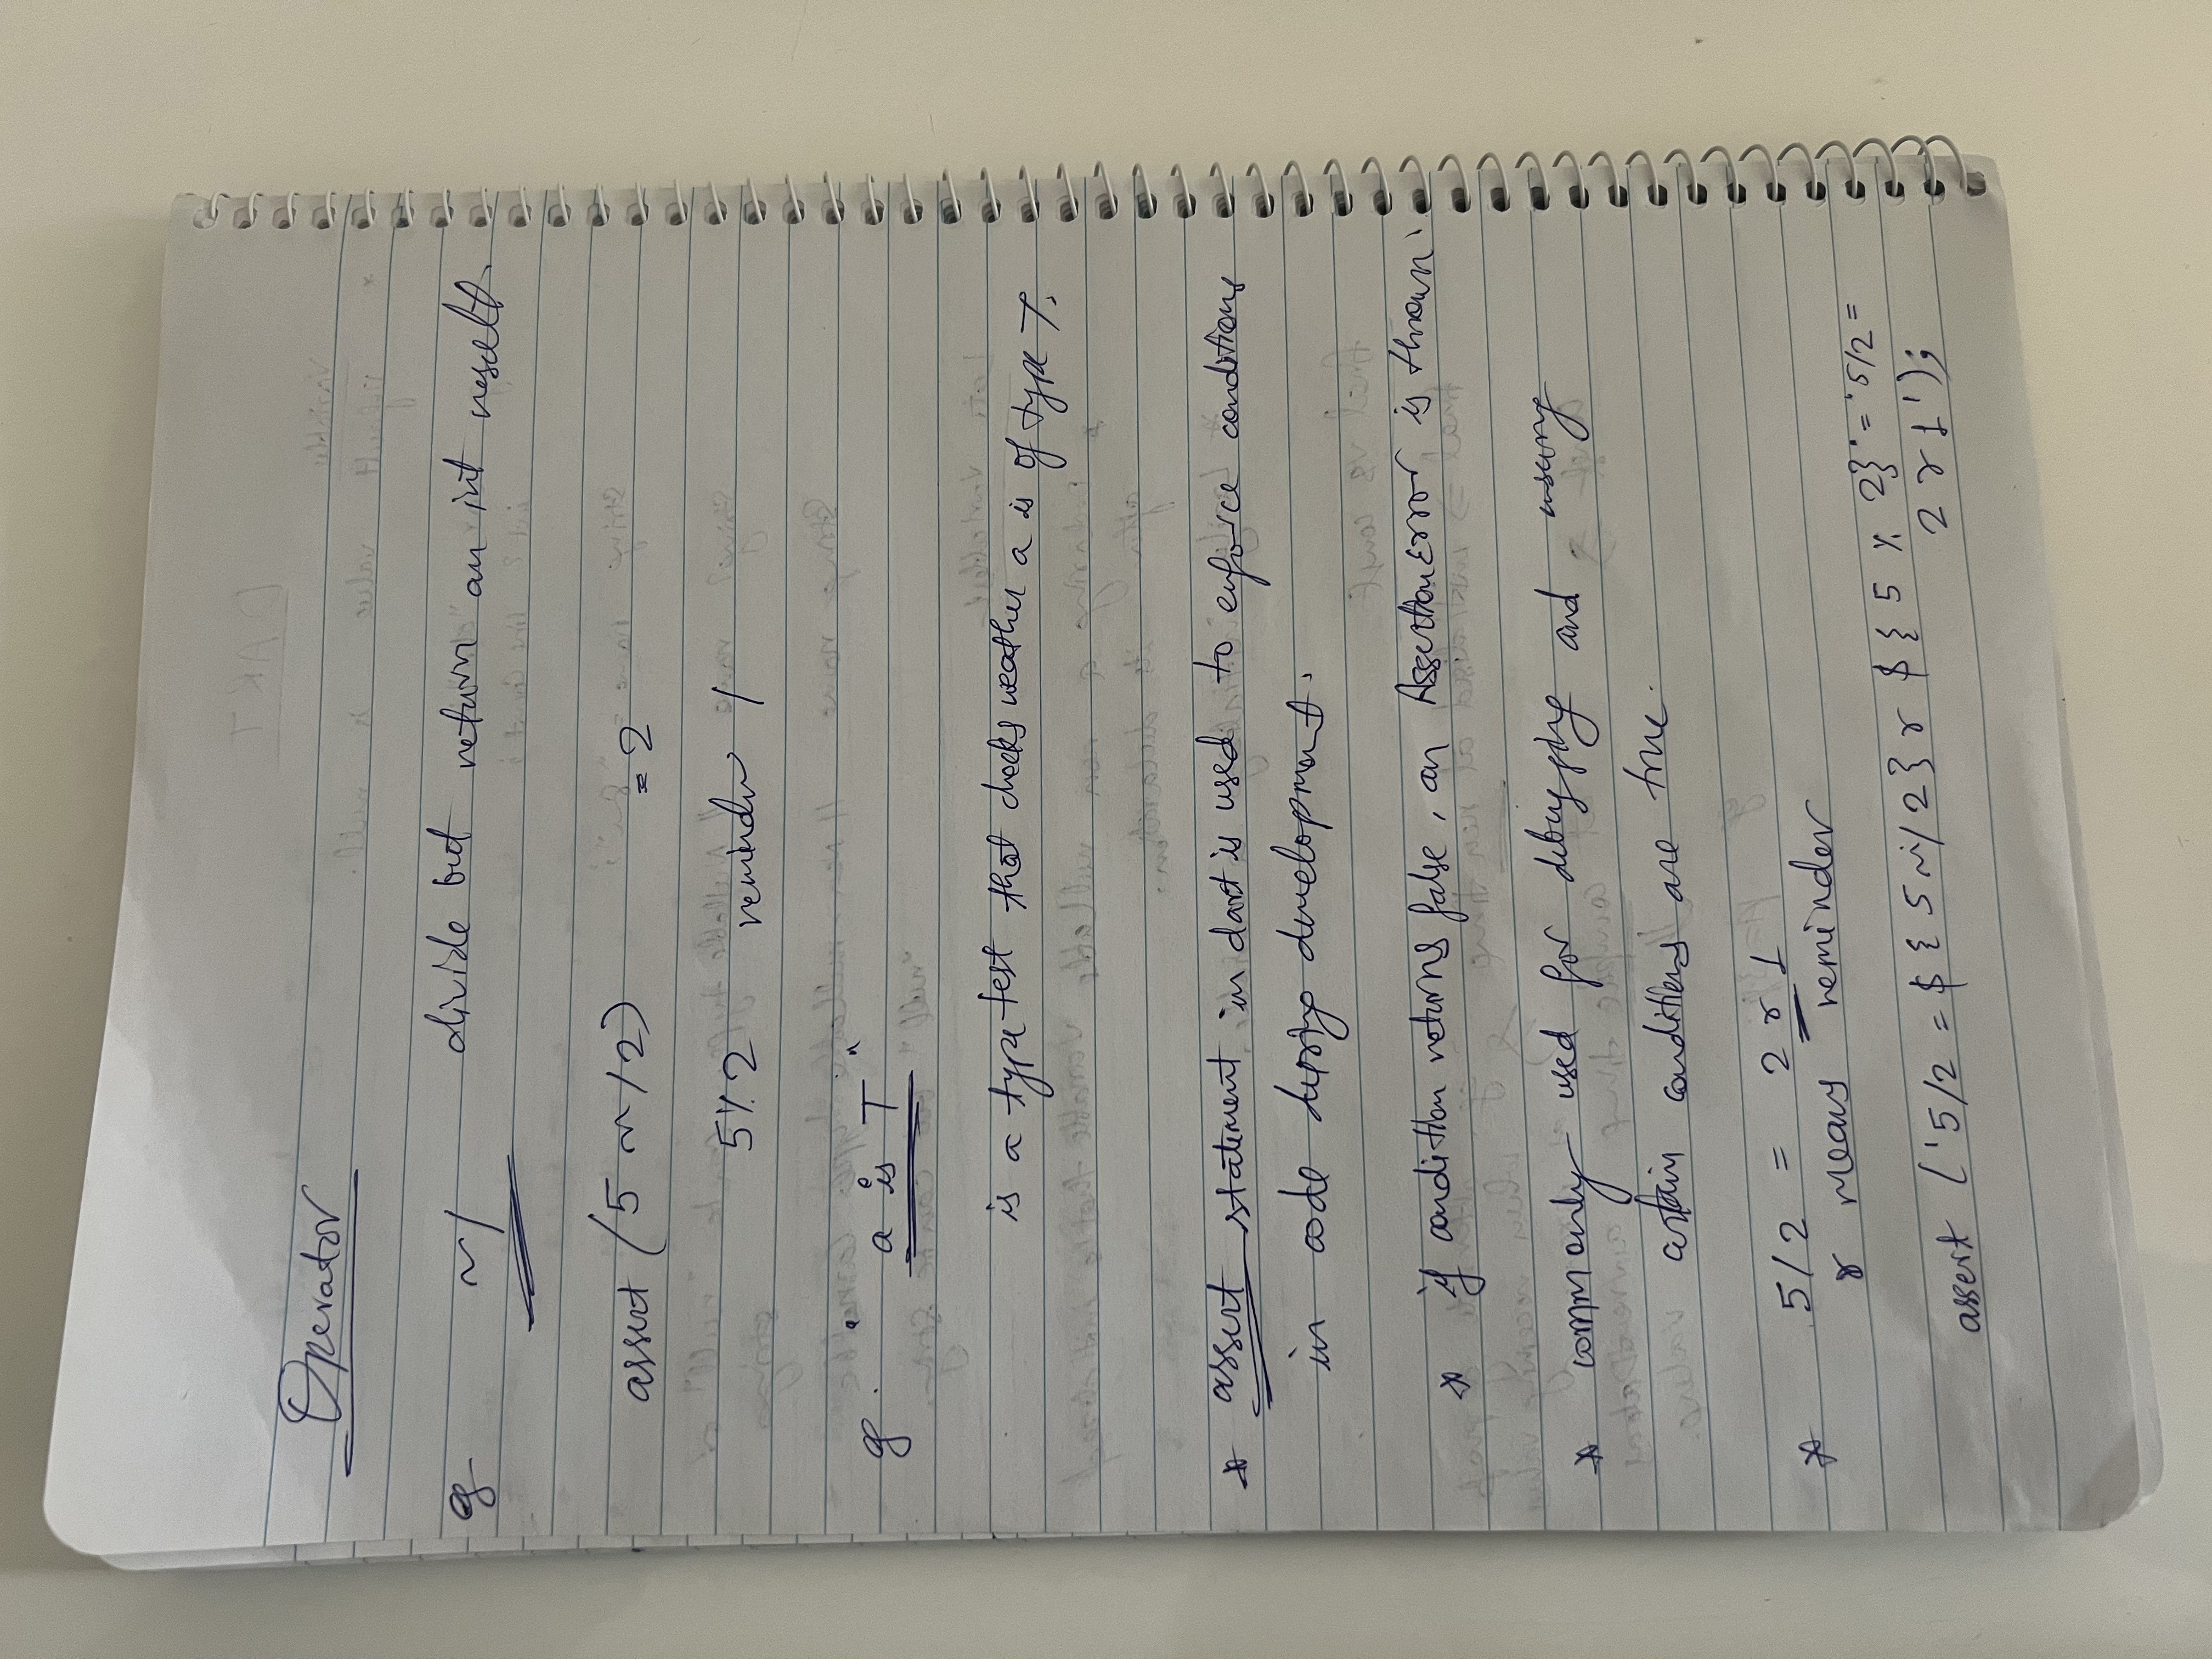 Operator
eg ~/ divide but return an int result.
assert (5 ~/2) = 2
5%2 reminder 1
eg. "a is T"
is a type test that checks weather a is of type T.
* assert statement in dart is used to enforce conditions
in code during development.
* if condition returns false, an AssertionError is thrown.
* commonly used for debugging and
certain conditions are true.
* 5/2 = 2 r 1
r means reminder
assert ('5/2 = ${5~/2} r ${5 % 2}' = '5/2 =
2 r 1');